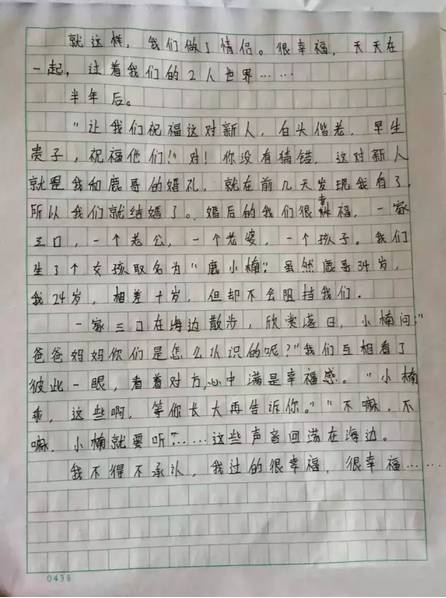 就这样，我们做了情侣。很幸福，天天在
一起，过着我们的2人世界……
半年后。
“让我们祝福这对新人，白头偕老，早生
贵子，祝福他们！”对！你没有猜错，这对新人
就是我和鹿哥的婚礼，就在前几天发现我有了，
所以我们就结婚了。婚后的我们很幸福，一家
三口，一个老公，一个老婆，一个孩子。我们
生了个女孩取名为“鹿小楠”。虽然鹿哥34岁，
我24岁，相差十岁，但却不会阻挡我们。
一家三口在海边散步，欣赏落日，小楠问：“
爸爸妈妈你们是怎么认识的呢？”我们互相看了
彼此一眼，看着对方，心中满是幸福感。“小楠
乖，这些啊，等你长大再告诉你。”“不嘛，不
嘛，小楠就要听”……这些声音回荡在海边。
我不得不承认，我过的很幸福，很幸福……
0438